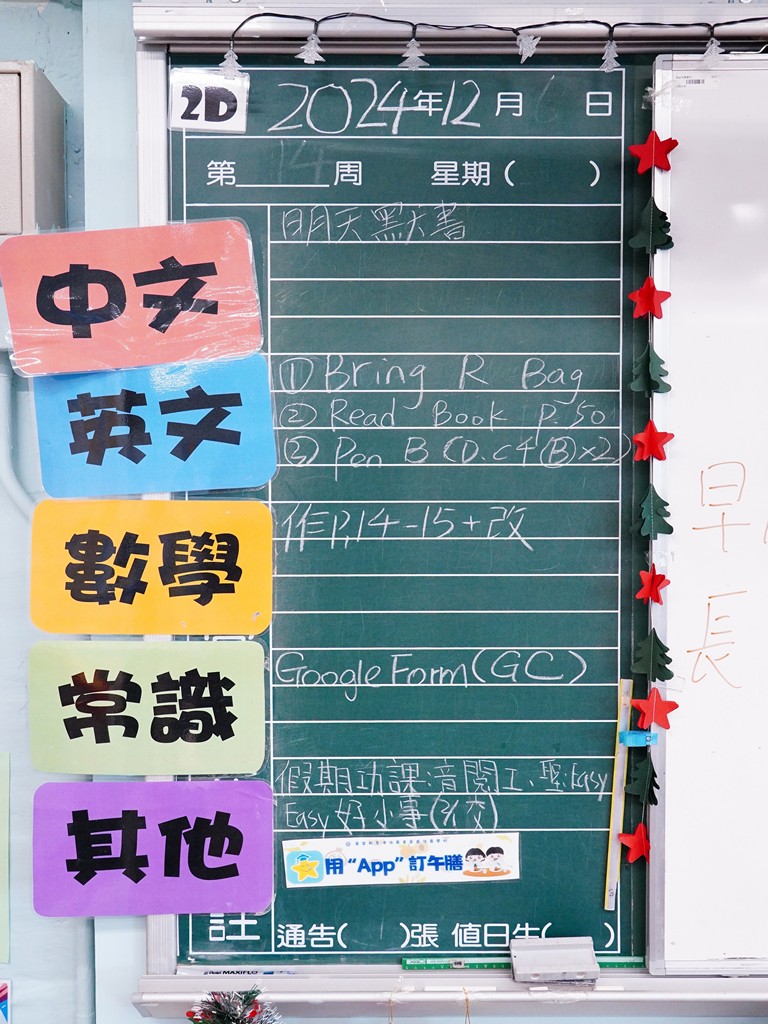 2D 2024年12月6日
第14周 星期( )
中文
明天默書
英文
①Bring R Bag
② Read Book P.50
③ Pen B (D.C4 Ⓑ×2)
數學
作P.14-15+改
常識
Google Form(GC)
其他
假期功課:音閱工、聖:Easy
Easy 好小事(不交)
用“App”訂午膳
註 通告( )張 值日生( )
MAXIFLO
早
長